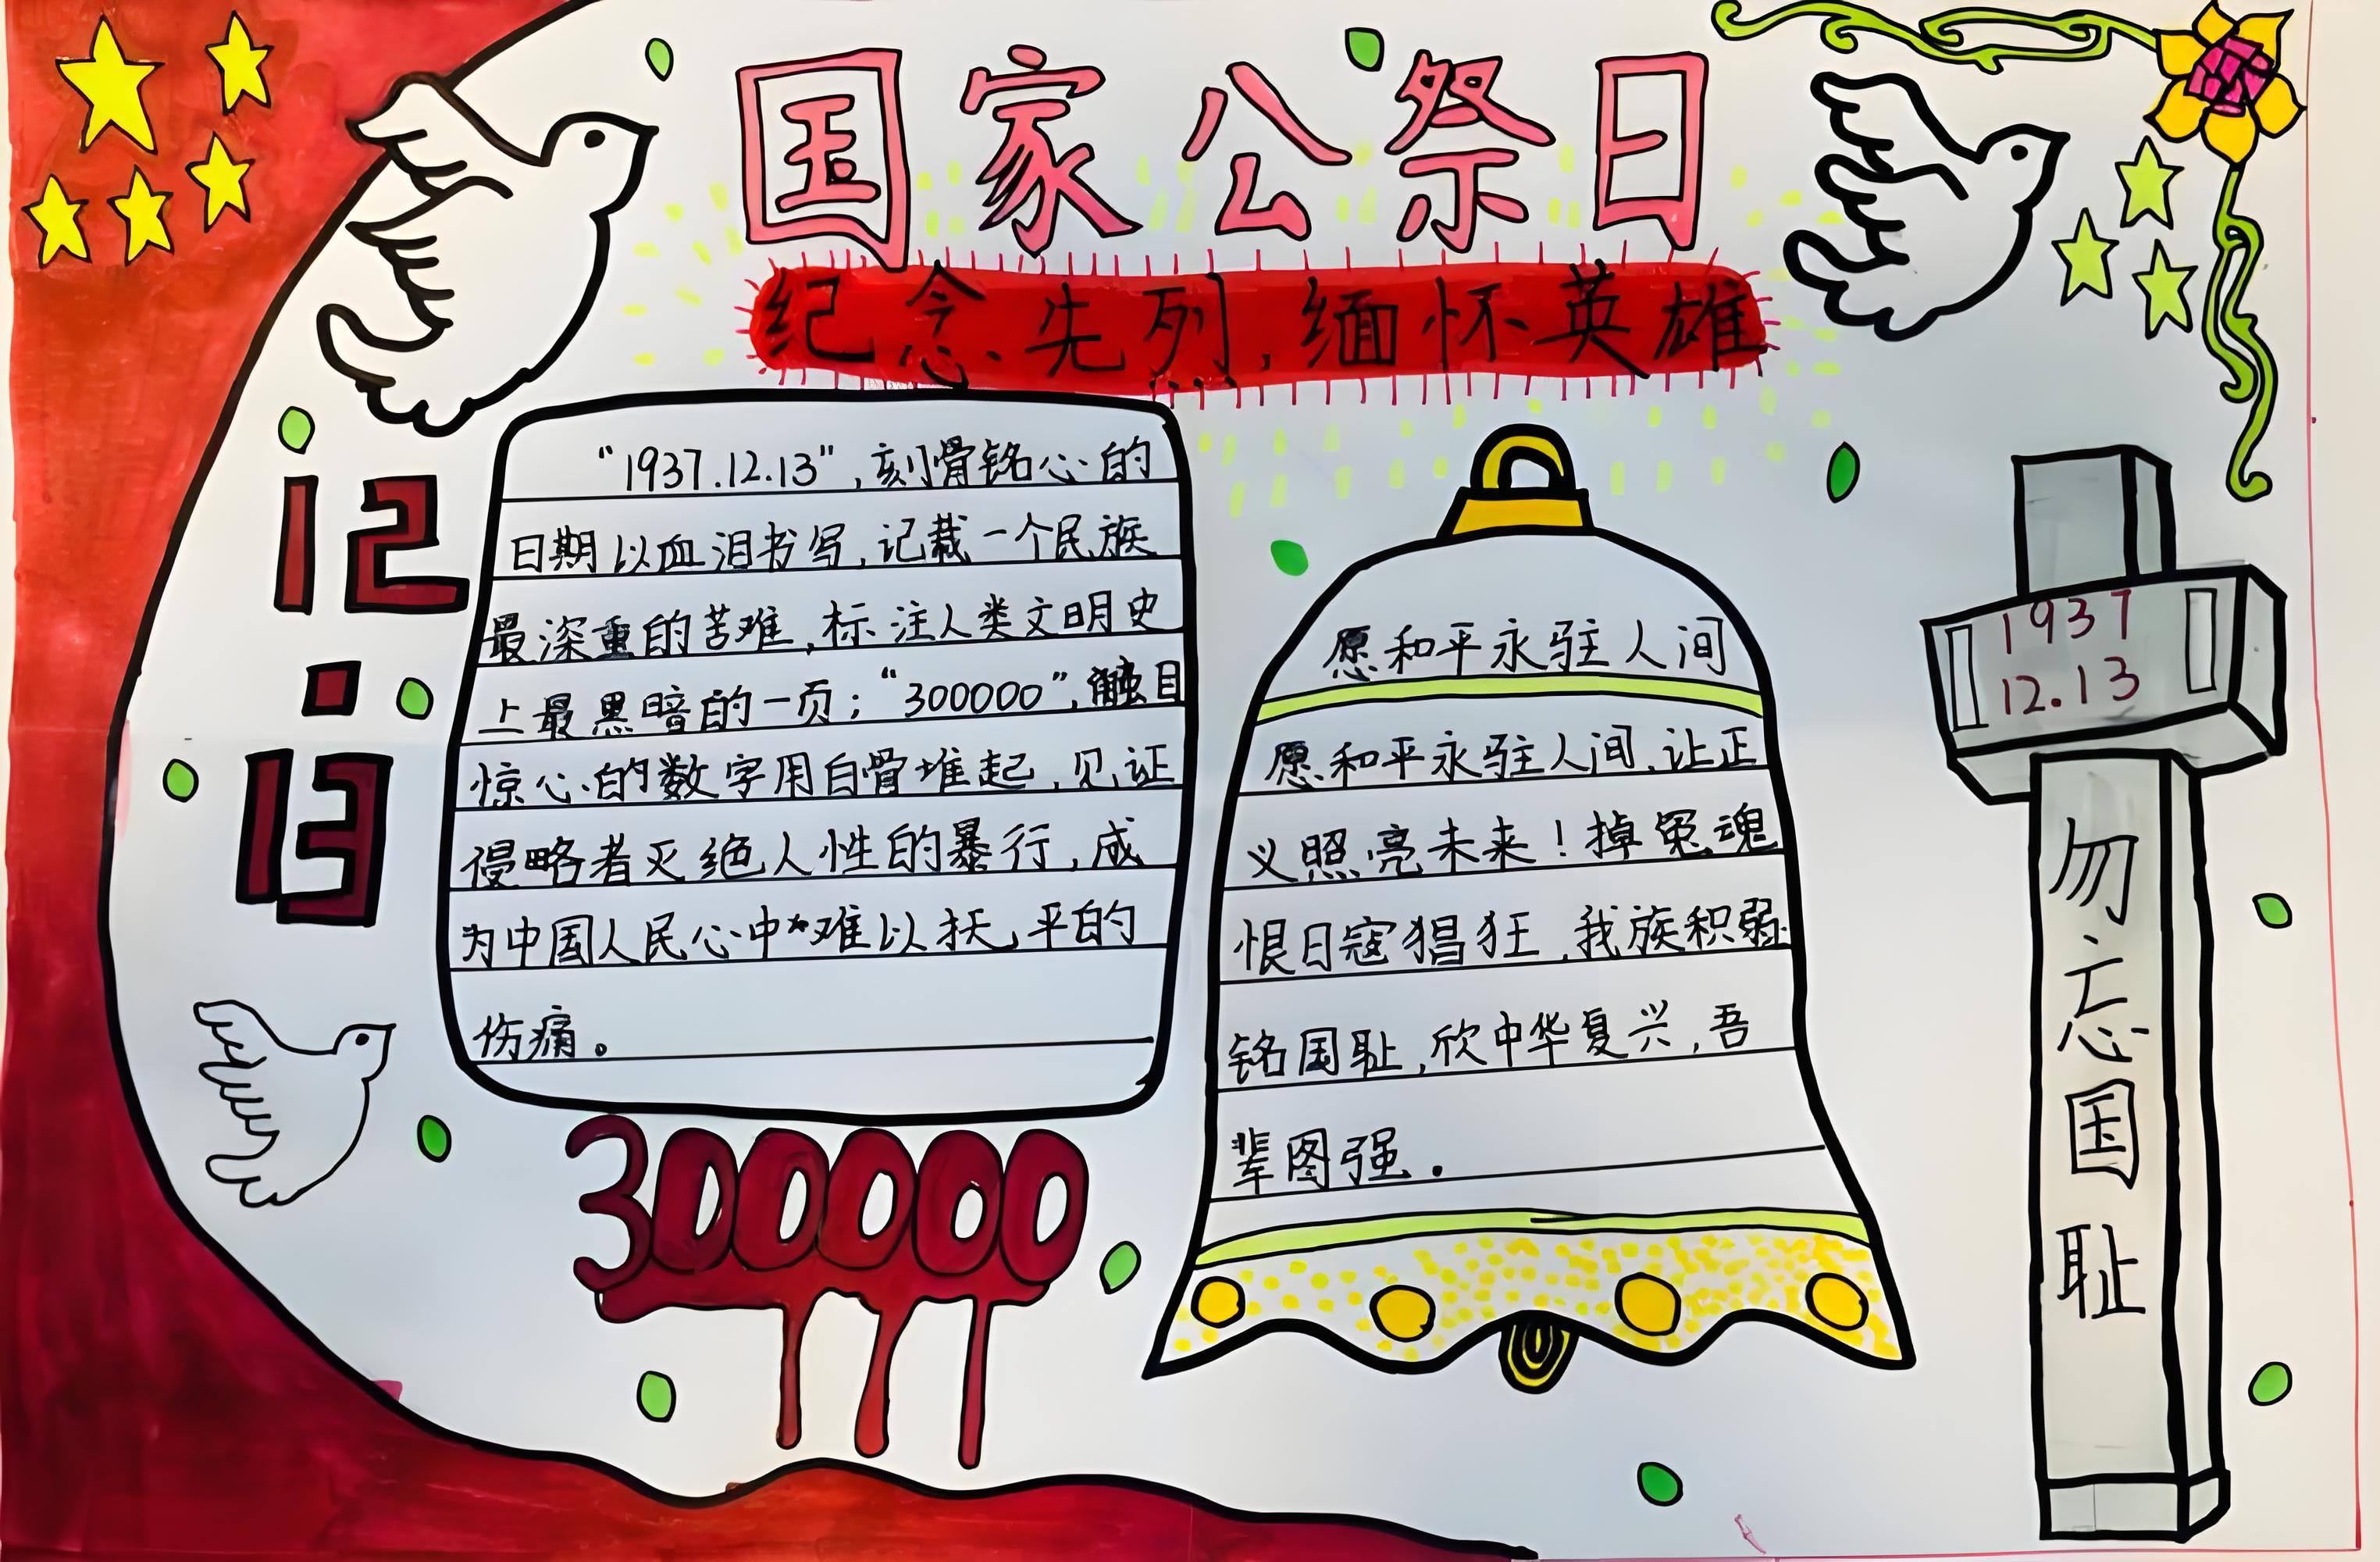 国家公祭日
纪念先列,缅怀英雄
12
.
13
“1937.12.13”,刻骨铭心的
日期以血泪书写,记载一个民族
最深重的苦难,标注人类文明史
上最黑暗的一页;“300000”,触目
惊心的数字用白骨堆起,见证
侵略者灭绝人性的暴行,成
为中国人民心中难以抚平的
伤痛。
300000
愿和平永驻人间
愿和平永驻人间,让正
义照亮未来!掉冤魂
恨日寇猖狂,我族积弱
铭国耻,欣中华复兴,吾
辈图强.
1937
12.13
勿忘国耻